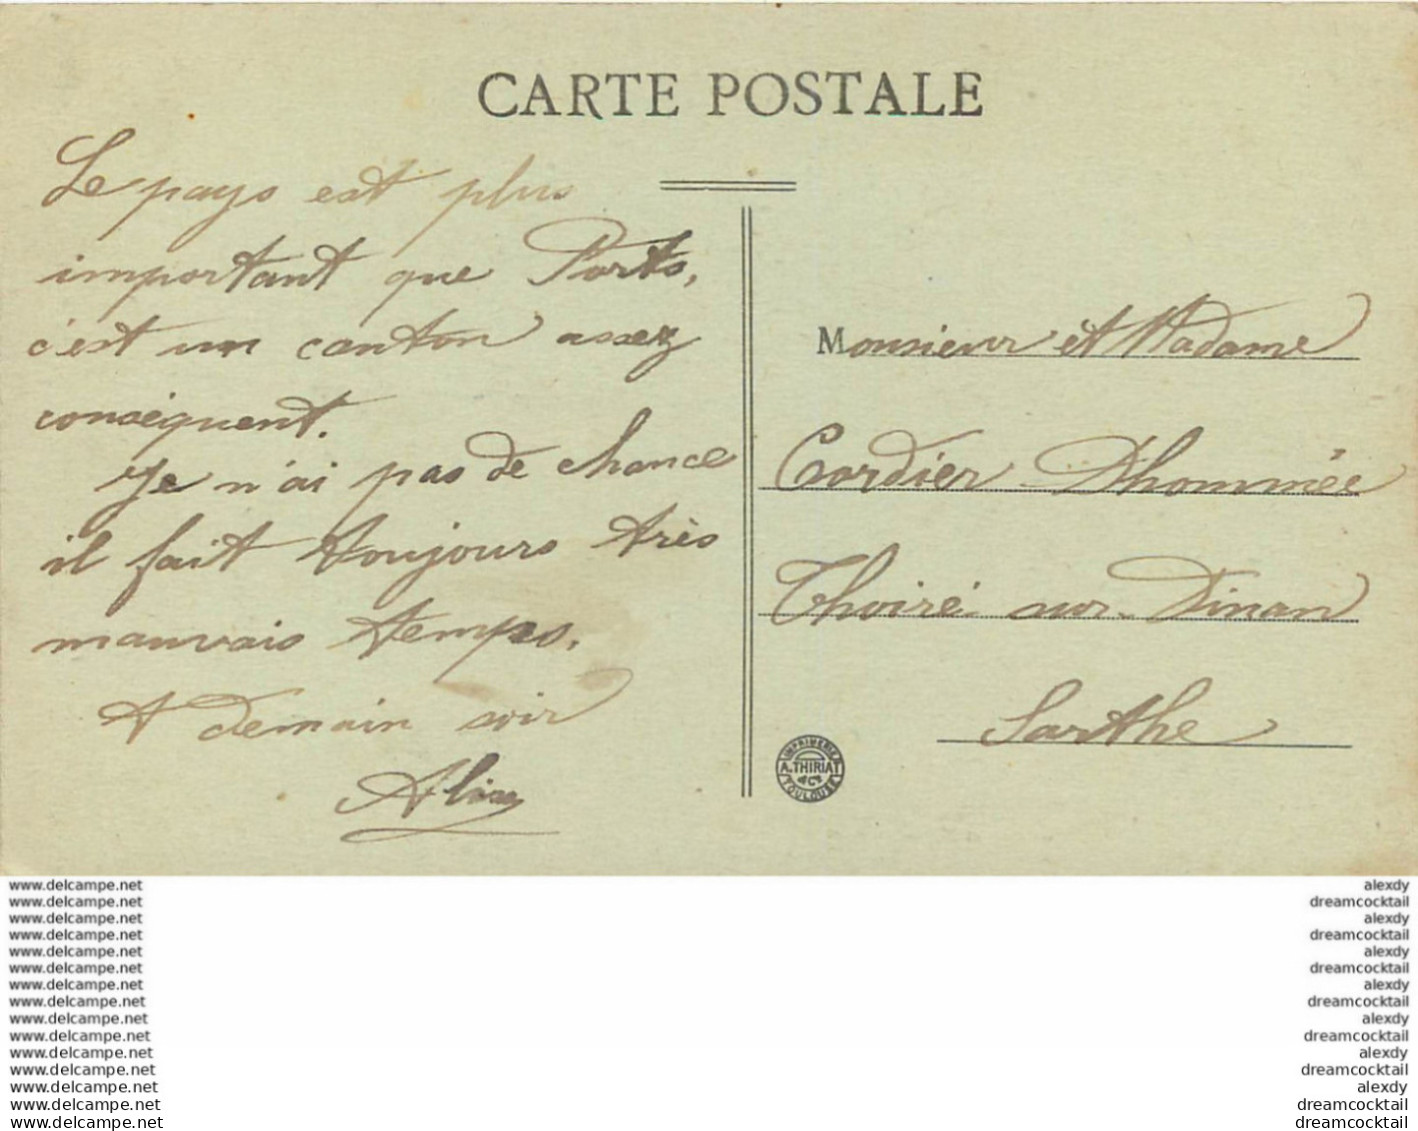 CARTE POSTALE
Le pays est plus
important que Ports,
c'est un canton assez
conséquent.
Je n'ai pas de chance
il fait toujours très
mauvais temps.
A demain soir
Monsieur et Madame
Cordier Dhommée
Thoiré sur Dinan
Sarthe
IMPRIMERIE
A. THIRIAT
& Cie
TOULOUSE
www.delcampe.net alexdy
www.delcampe.net dreamcocktail
www.delcampe.net alexdy
www.delcampe.net dreamcocktail
www.delcampe.net alexdy
www.delcampe.net dreamcocktail
www.delcampe.net alexdy
www.delcampe.net dreamcocktail
www.delcampe.net alexdy
www.delcampe.net dreamcocktail
www.delcampe.net alexdy
www.delcampe.net dreamcocktail
www.delcampe.net alexdy
www.delcampe.net dreamcocktail
www.delcampe.net dreamcocktail